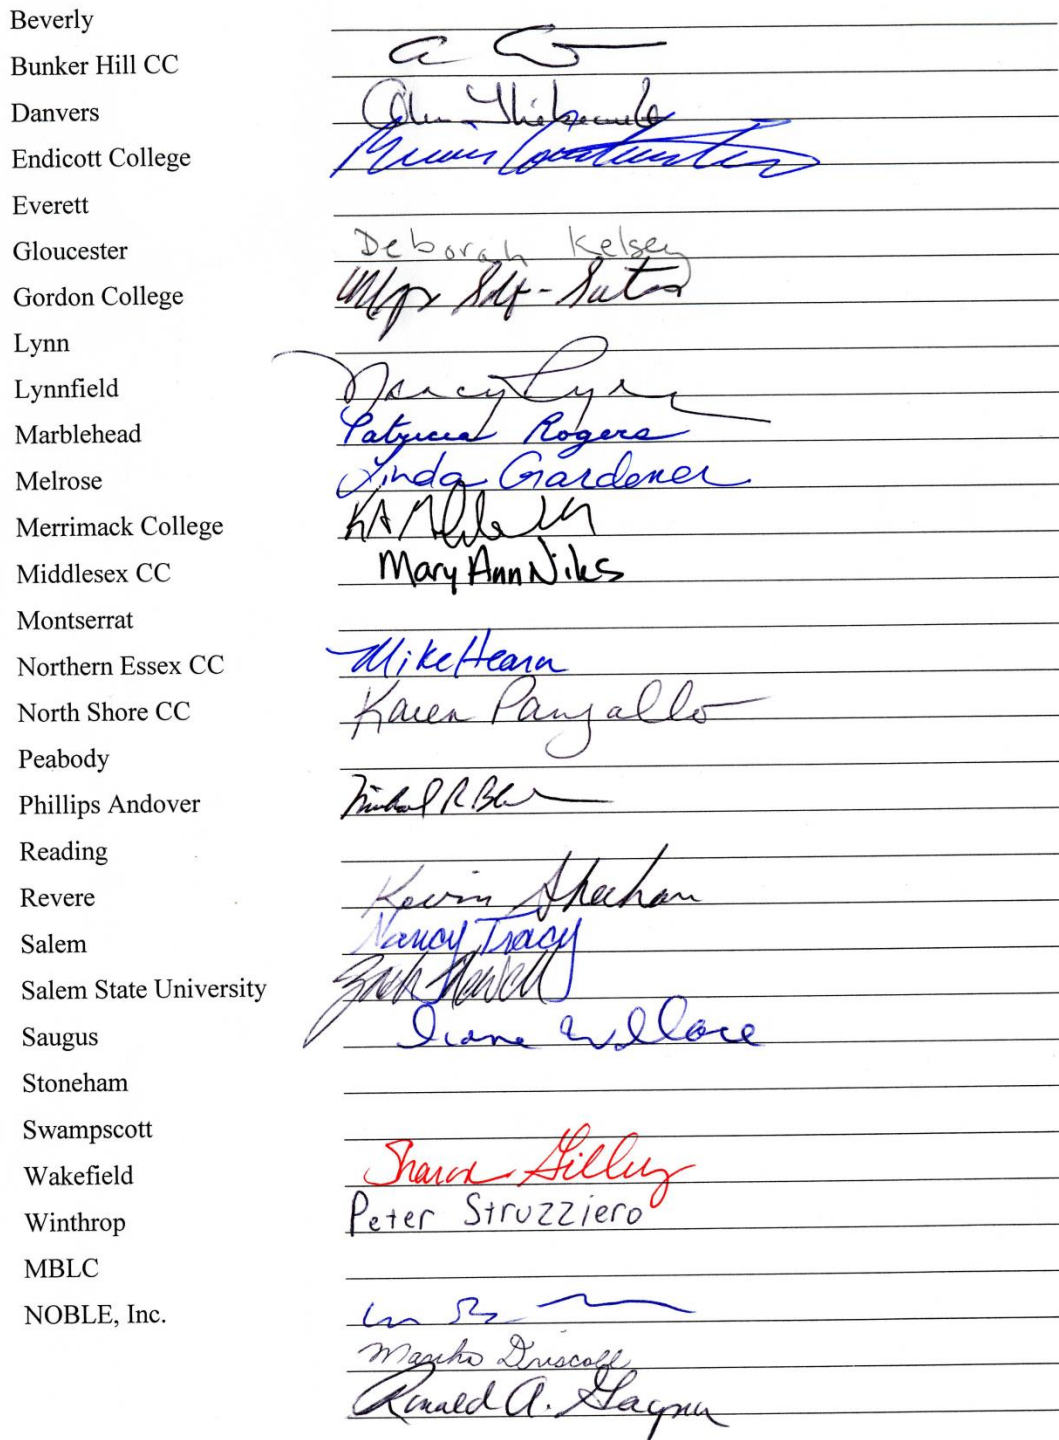 Beverly
Bunker Hill CC
Danvers
Endicott College
Everett
Gloucester Deborah Kelsey
Gordon College
Lynn
Lynnfield Nancy Ryan
Marblehead Patricia Rogers
Melrose Linda Gardener
Merrimack College
Middlesex CC Mary Ann Niles
Montserrat
Northern Essex CC Mike Hearn
North Shore CC Karen Pangallo
Peabody
Phillips Andover Michael R Bl
Reading
Revere Kevin Sheehan
Salem Nancy Tracy
Salem State University Zach Newell
Saugus Diane Wallace
Stoneham
Swampscott
Wakefield Sharon Gilley
Winthrop Peter Struzziero
MBLC
NOBLE, Inc.
Martha Driscoll
Ronald A. Gagnon